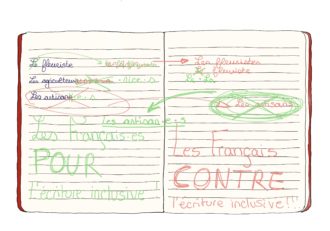 Le fleuriste
Les agriculteurs · rice · s
Les artisans · e · s
Les artisan · e · s
Les Français·es
POUR
l'écriture inclusive !
Les fleuristes
Le fleuriste
Les artisans
Les Français
CONTRE
l'écriture inclusive !!